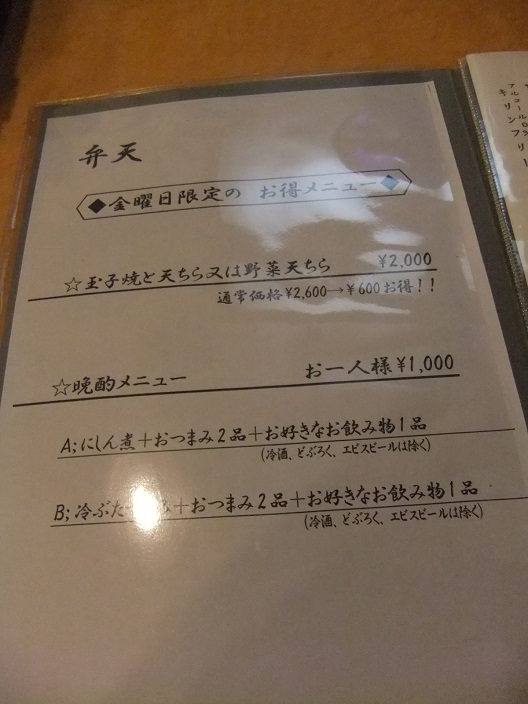 弁天
◆金曜日限定の お得メニュー◆
☆玉子焼と天ちら又は野菜天ちら ¥2,000
通常価格¥2,600→¥600お得!!
☆晩酌メニュー お一人様¥1,000
A;にしん煮+おつまみ2品+お好きなお飲み物1品
(冷酒、どぶろく、エビスビールは除く)
B;冷ぶた み+おつまみ2品+お好きなお飲み物1品
(冷酒、どぶろく、エビスビールは除く)
キリンフリー